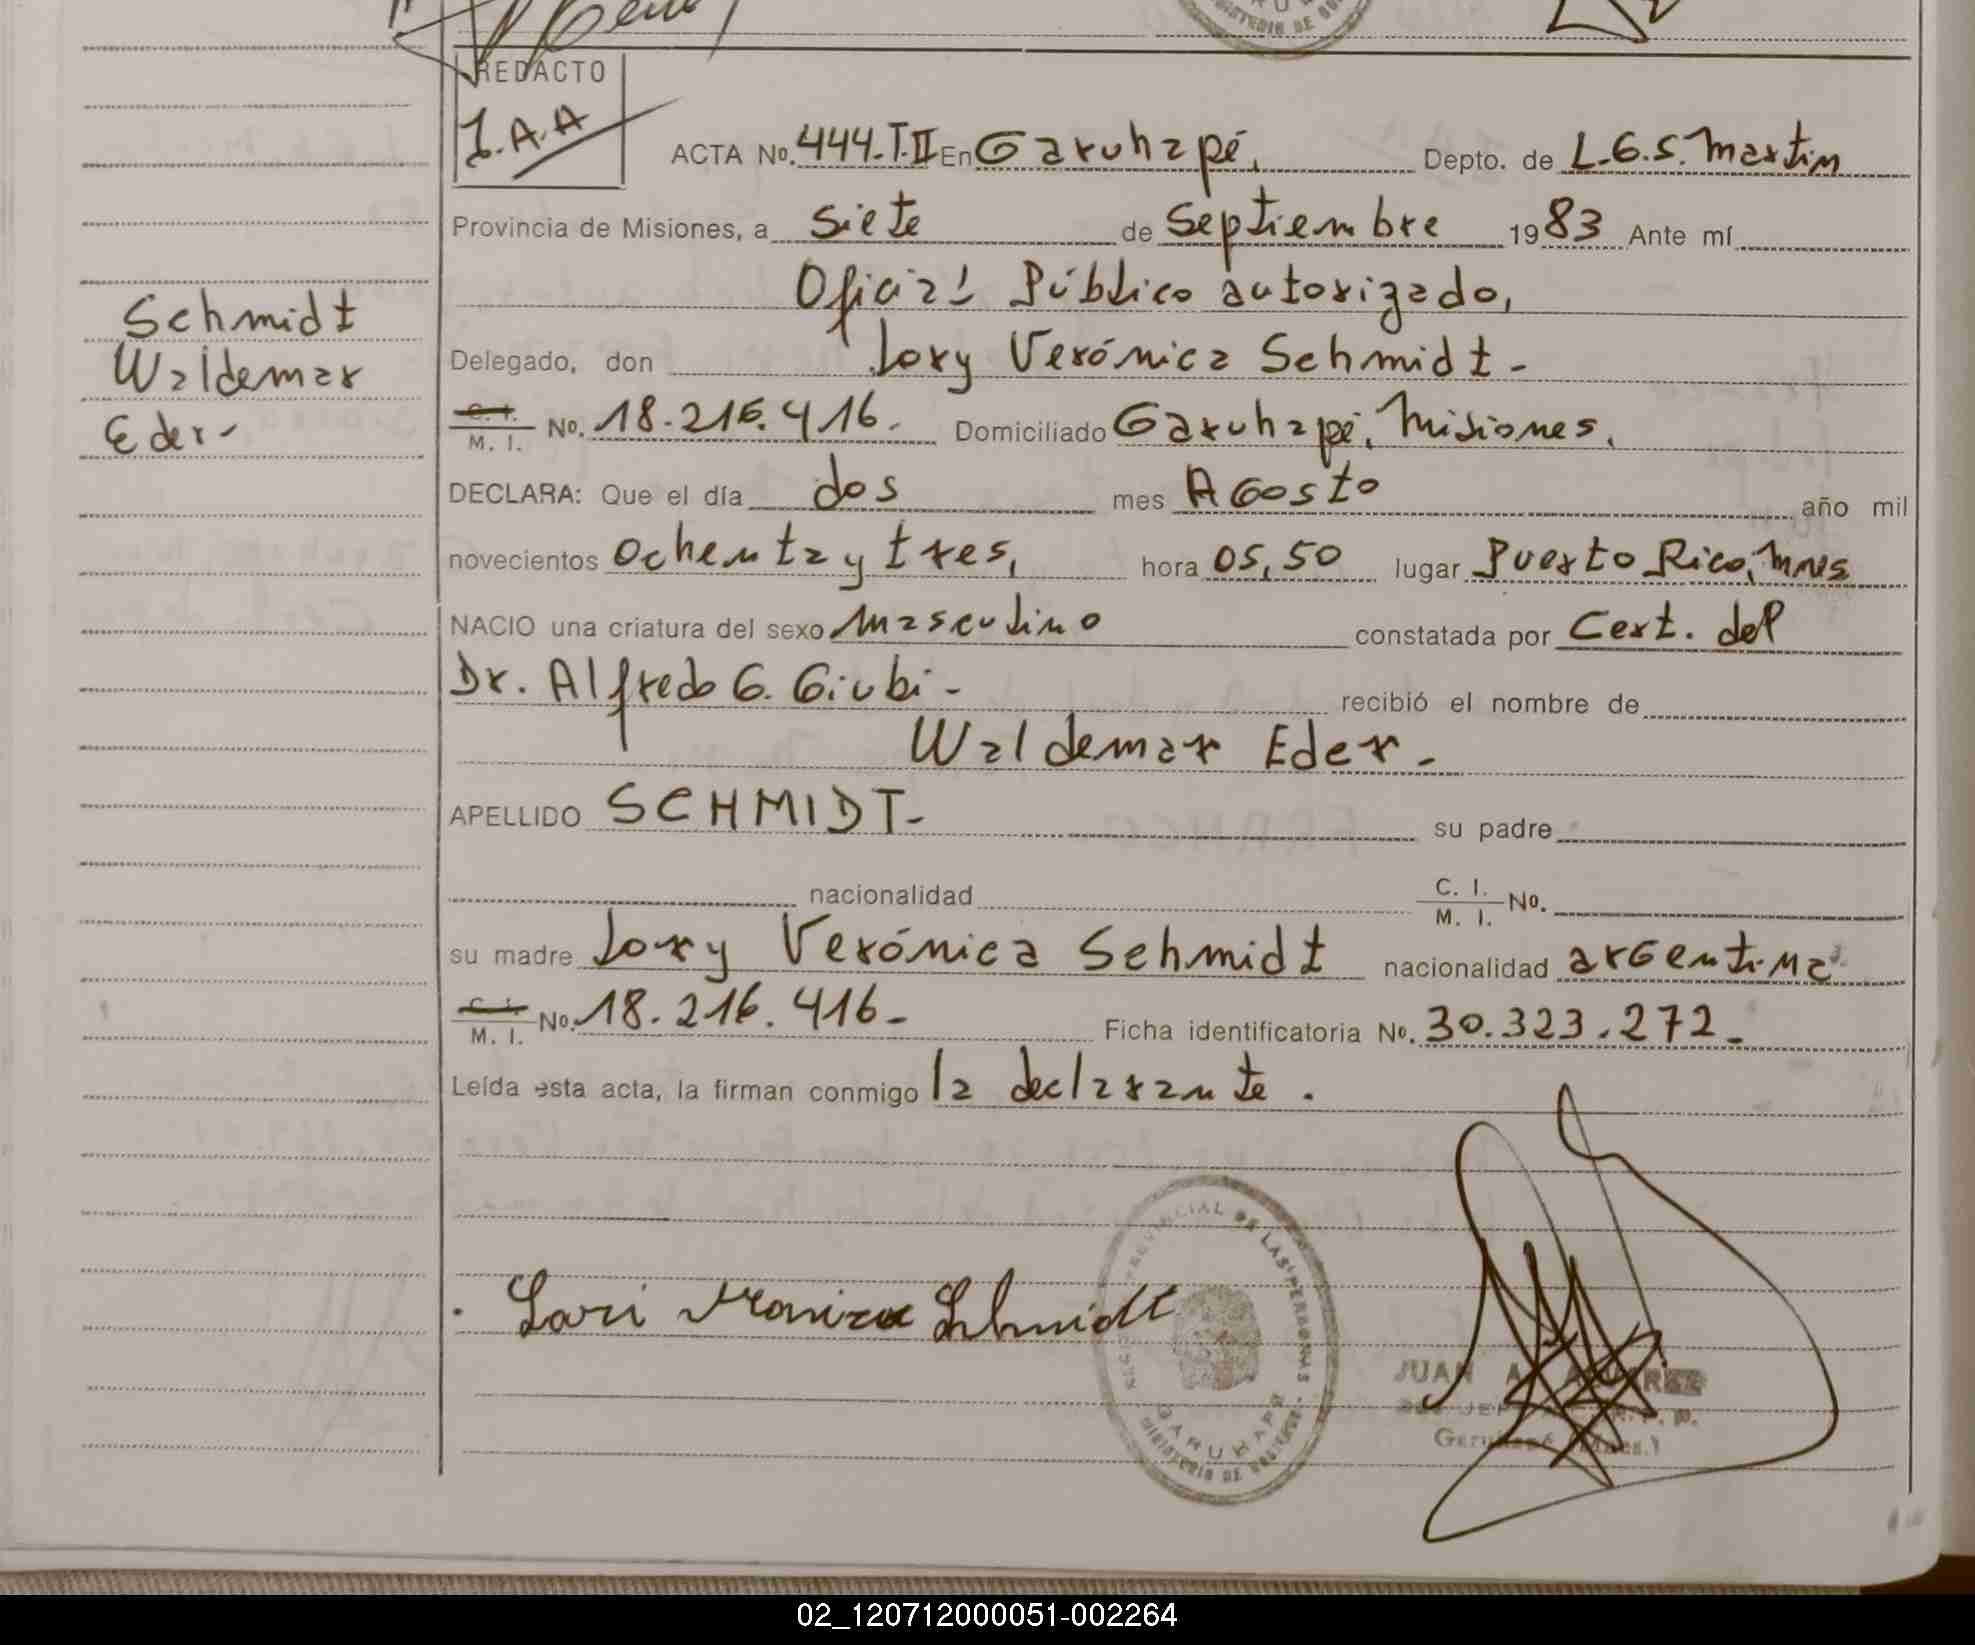 REDACTO
J.A.A
ACTA No. 444.T.II En Garuhapé, Depto. de L.G.S. Martin
Provincia de Misiones, a siete de Septiembre 1983 Ante mí
Oficial Público autorizado,
Delegado, don Lory Verónica Schmidt -
C. I. M. I. No. 18.216.416. Domiciliado Garuhapé, Misiones.
DECLARA: Que el día dos mes Agosto año mil
novecientos ochenta y tres, hora 05,50 lugar Puerto Rico, Mnes
NACIO una criatura del sexo masculino constatada por Cert. del
Dr. Alfredo G. Giubi - recibió el nombre de
Waldemar Eder -
APELLIDO SCHMIDT - su padre
nacionalidad C. I. M. I. No.
su madre Lory Verónica Schmidt nacionalidad argentina
C. I. M. I. No. 18.216.416 - Ficha identificatoria No. 30.323.272 -
Leída esta acta, la firman conmigo la declarante .
Schmidt
Waldemar
Eder -
Lori Schmidt
PROVINCIAL DE LAS PERSONAS
GARUHAPE
MINISTERIO DE GOBIERNO
JUAN A.
Garuhapé (Mnes.)
02_120712000051-002264